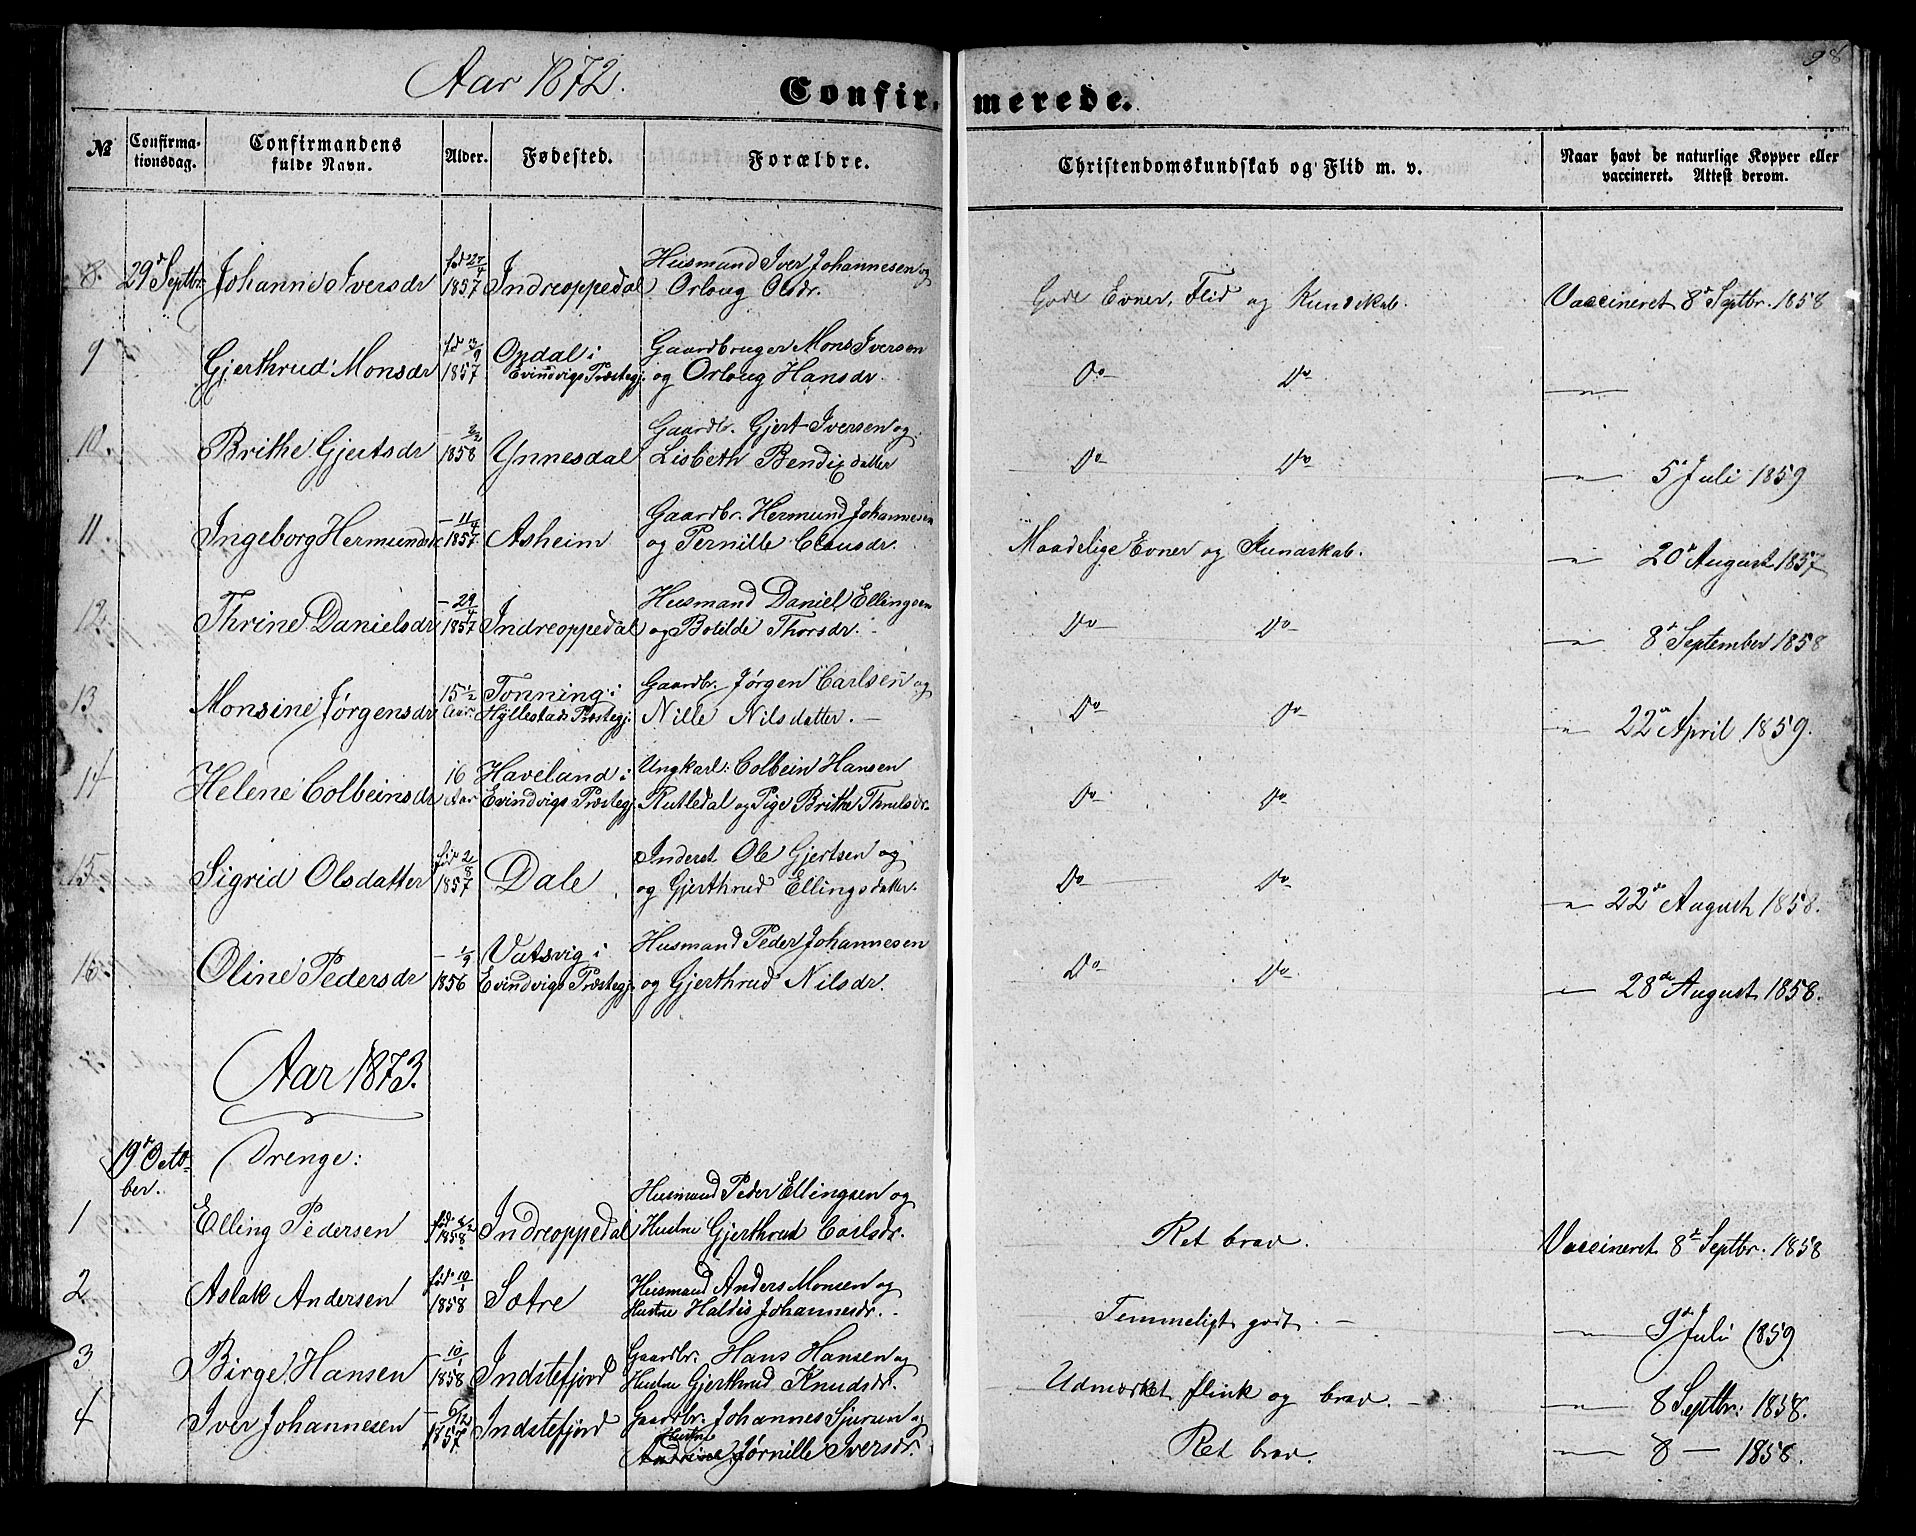 98
Aar 1872.
Confirmerede.
№ Confirmationsdag. Confirmandens fulde Navn. Alder. Fødested. Forældre. Christendomskundskab og Flid m. v. Naar havt de naturlige Kopper eller vaccineret. Attest derom.
8. 29de Septbr. Johanne Iversdr fød 27/4 1857 Indreoppedal Husmand Iver Johannesen og Orloug Olsdr. Gode Evner, Flid og Kundskab. Vaccineret 8de Septbr. 1858
9 Gjerthrud Monsdr fød 13/9 1857 Opdal i Evindvigs Præstegj. Gaardbruger Mons Iversen og Orloug Hansdr. Do Do — " —
10. Brithe Gjertsdr — 3/2 1858 Ynnesdal Gaardbr. Gjert Iversen og Lisbeth Bendixdatter Do Do — " — 5te Juli 1859
11 Ingeborg Hermundsdr — 11/4 1857 Asheim Gaardbr. Hermund Johannesen og Pernille Clausdr. Maadelige Evner og Kundskab. — " — 20de August 1857
12. Thrine Danielsdr — 29/4 1857 Indreoppedal Husmand Daniel Ellingsen og Botilde Thorsdr. Do Do — " — 8de September 1858
13 Monsine Jørgensdr 15 1/2 Aar. Tonning i Hyllestads Præstegj. Gaardbr. Jørgen Carlsen og Nille Nilsdatter. — Do Do — " — 22de April 1859.
14 Helene Colbeinsdr 16 Aar Haveland i Evindvigs Præstegj. Ungkarl: Colbein Hansen Rutledal og Pige Brithe Thrulsdr. Do Do
15. Sigrid Olsdatter fød 2/8 1857 Dale Inderst Ole Gjertsen og og Gjerthrud Ellingsdatter. Do Do — " — 22de August 1858.
16. Oline Pedersdr — 1/9 1856 Vatsvig i Evindvigs Præstegj. Husmand Peder Johannesen og Gjerthrud Nilsdr. Do Do — " — 28de August 1858.
Aar 1873.
19de October. Drenge:
1 Elling Pedersen fød 1858 Indreoppedal Husmand Peder Ellingsen og Hustru Gjerthrud Carlsdr. Ret brav. Vaccineret 8de Septbr. 1858
2 Aslak Andersen fød 10/1 1858 Sotre Husmand Anders Monsen og Hustru Haldis Johannesdr. — Temmeligt godt. — — " — 9de Juli 1859
3 Birge Hansen — 10/1 1858 Indstefjord Gaardbr. Hans Hansen og Hustru Gjerthrud Knudsdr. Udmærket flink og brav. — — " — 8 Septbr. 1858.
4 Iver Johannesen — 6/12 1857 Indstefjord Gaardbr. Johannes Sjursen og Hustru Jørnille Iversdr. Ret brav. — " — 8 — 1858.